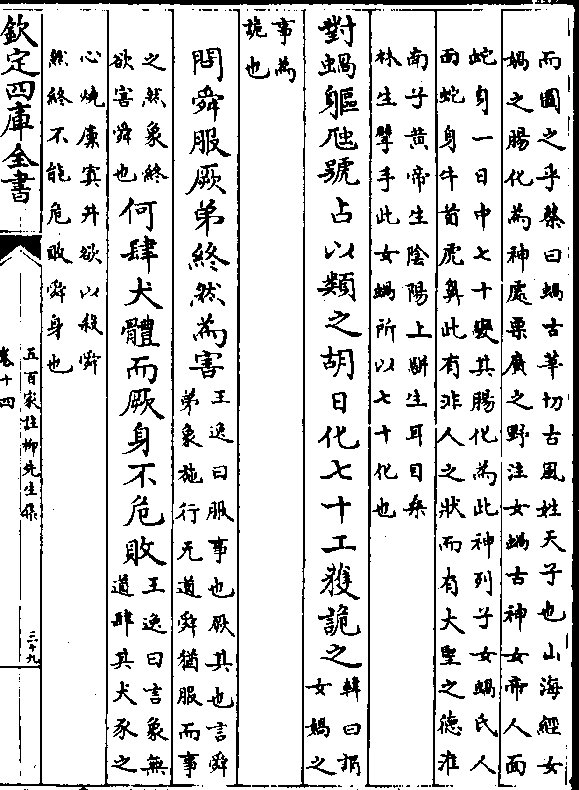 而圖之乎蔡曰媧古華切古風姓天子也山海經女
媧之腸化為神處栗廣之野注女媧古神女帝人面
蛇身一日中七十變其腸化為此神列子女媧氏人
面蛇身牛首虎鼻此有非人之狀而有大聖之德淮
南子黄帝生陰陽上駢生耳目桑
林生擘手此女媧所以七十化也
對媧軀虺號占以類之胡日化七十工獲詭之
韓曰捐
女媧之
事為
詭也
問舜服厥弟終然為害
王逸曰服事也厥其也言舜
弟象施行无道舜猶服而事
之然象終
欲害舜也
何肆犬體而厥身不危敗
王逸曰言象無
道肆其犬豕之
心燒廩窴井欲以殺舜
然終不能危敗舜身也
欽定四庫全書
五百家註柳先生集
卷十四
三十九